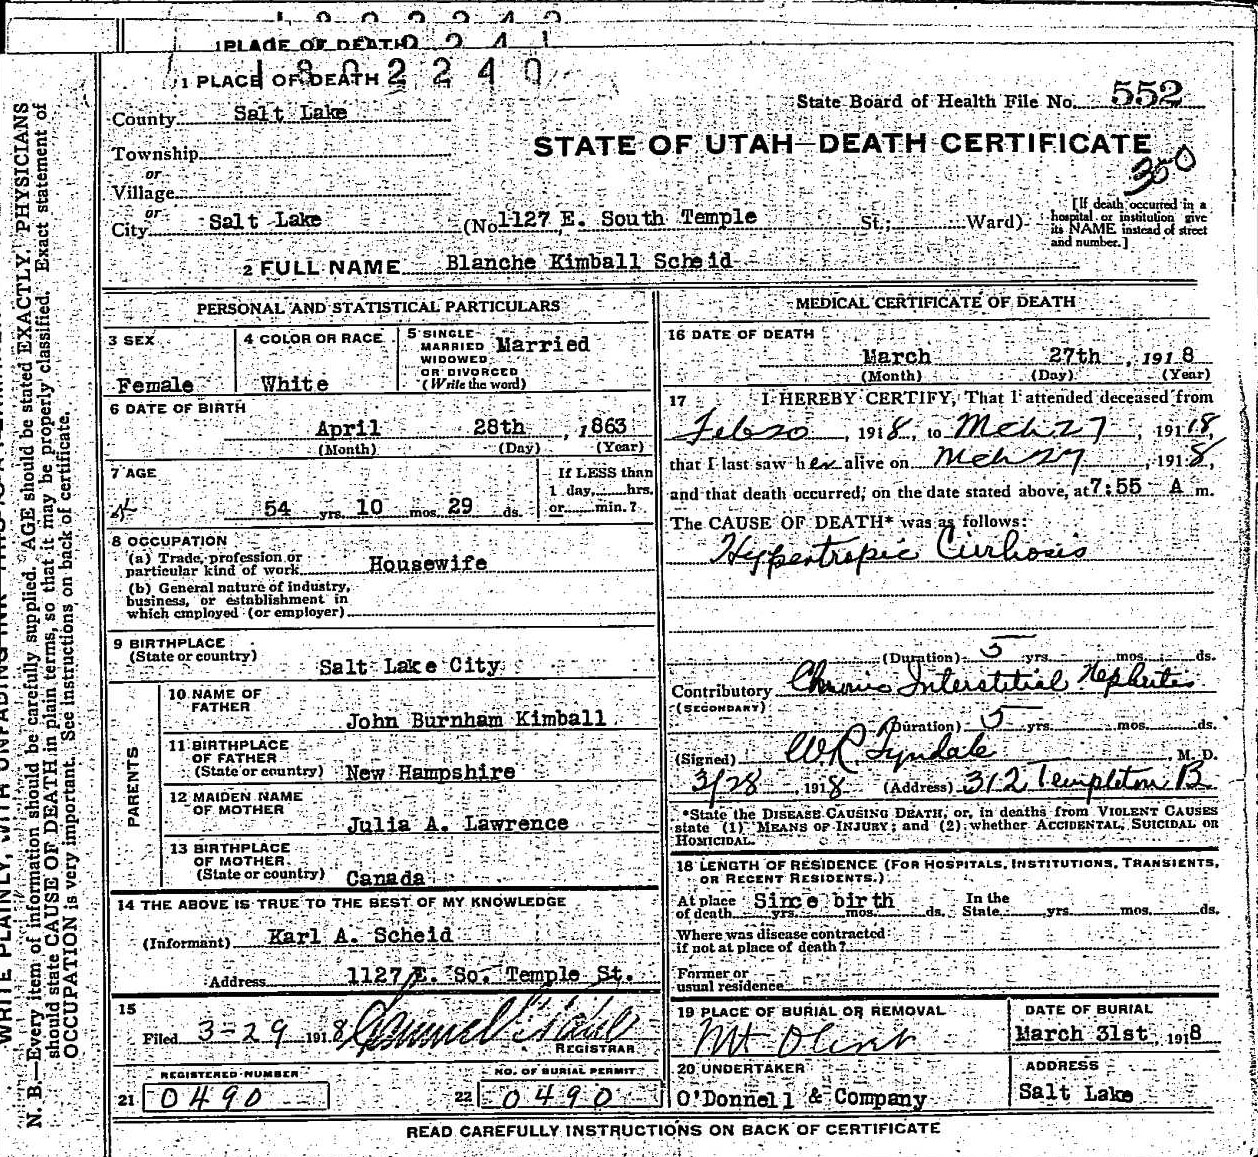 1 PLACE OF DEATH
1 PLACE OF DEATH
1802240
County Salt Lake
State Board of Health File No. 552
Township
or
Village
or
City Salt Lake
STATE OF UTAH—DEATH CERTIFICATE
350
(No. 1127 E. South Temple St.; Ward)
[If death occurred in a
hospital or institution give
its NAME instead of street
and number.]
2 FULL NAME Blanche Kimball Scheid
PERSONAL AND STATISTICAL PARTICULARS
3 SEX
Female
4 COLOR OR RACE
White
5 SINGLE
MARRIED Married
WIDOWED
OR DIVORCED
(Write the word)
6 DATE OF BIRTH
April 28th, 1863
(Month) (Day) (Year)
7 AGE
54 yrs. 10 mos. 29 ds.
If LESS than
1 day, hrs.
or min.?
8 OCCUPATION
(a) Trade, profession or
particular kind of work Housewife
(b) General nature of industry,
business, or establishment in
which employed (or employer)
9 BIRTHPLACE
(State or country) Salt Lake City
PARENTS
10 NAME OF
FATHER
John Burnham Kimball
11 BIRTHPLACE
OF FATHER
(State or country) New Hampshire
12 MAIDEN NAME
OF MOTHER
Julia A. Lawrence
13 BIRTHPLACE
OF MOTHER
(State or country) Canada
14 THE ABOVE IS TRUE TO THE BEST OF MY KNOWLEDGE
(Informant) Karl A. Scheid
Address 1127 E. So. Temple St.
15
Filed 3-29 1918
REGISTRAR
REGISTERED NUMBER
21 0490
NO. OF BURIAL PERMIT
22 0490
MEDICAL CERTIFICATE OF DEATH
16 DATE OF DEATH
March 27th, 1918
(Month) (Day) (Year)
17 I HEREBY CERTIFY, That I attended deceased from
Feb 20, 1918, to Mch 27, 1918,
that I last saw her alive on Mch 27, 1918,
and that death occurred, on the date stated above, at 7:55 A m.
The CAUSE OF DEATH* was as follows:
Hypertropic Cirrhosis
(Duration) 5 yrs. mos. ds.
Contributory Chronic Interstitial Nephritis
(SECONDARY)
(Duration) 5 yrs. mos. ds.
(Signed) W R Tyndale M. D.
3/28, 1918 (Address) 312 Templeton B
*State the DISEASE CAUSING DEATH, or, in deaths from VIOLENT CAUSES
state (1) MEANS OF INJURY; and (2) whether ACCIDENTAL, SUICIDAL OR
HOMICIDAL.
18 LENGTH OF RESIDENCE (FOR HOSPITALS, INSTITUTIONS, TRANSIENTS,
OR RECENT RESIDENTS.)
At place Since birth In the
of death yrs. mos. ds. State yrs. mos. ds.
Where was disease contracted
if not at place of death?
Former or
usual residence
19 PLACE OF BURIAL OR REMOVAL
Mt Olivet
DATE OF BURIAL
March 31st, 1918
20 UNDERTAKER
O'Donnell & Company
ADDRESS
Salt Lake
READ CAREFULLY INSTRUCTIONS ON BACK OF CERTIFICATE
N. B.—Every item of information should be carefully supplied. AGE should be stated EXACTLY. PHYSICIANS
should state CAUSE OF DEATH in plain terms, so that it may be properly classified. Exact statement of
OCCUPATION is very important. See instructions on back of certificate.